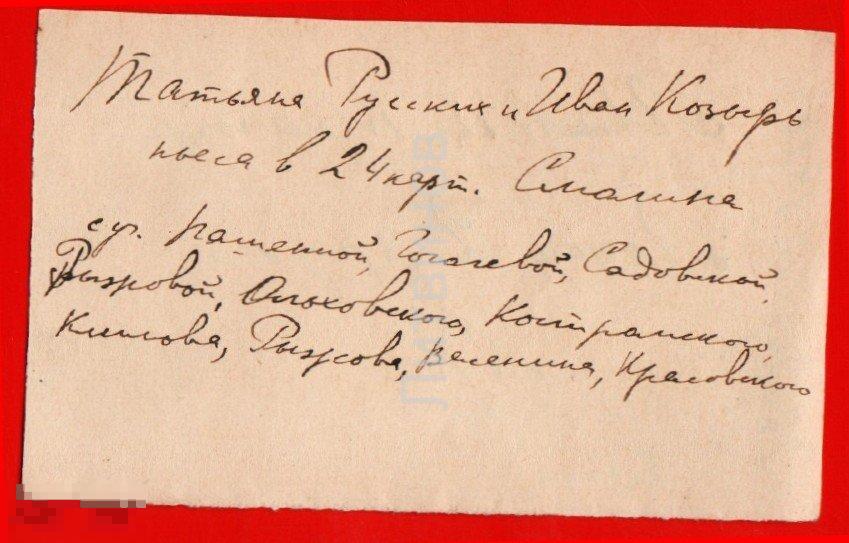 Татьяна Русских и Иван Козырь
пьеса в 24 карт. Смолина
с уч. Пашенной, Гоголевой, Садовской,
Рыжовой, Ольховского, Костромского,
Климова, Рыжова, Валенина,